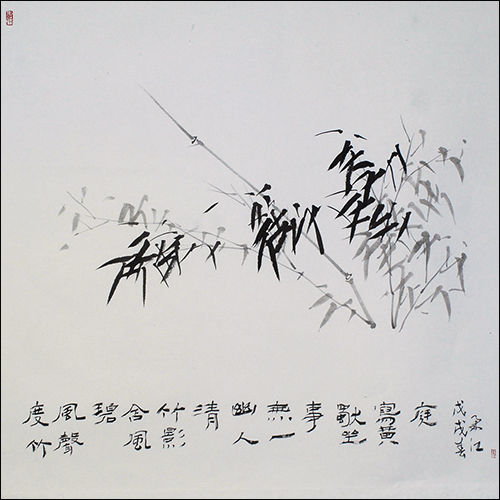 度竹
風聲
碧
含風
竹影
清
幽人
無一
事
默坐
寫黃
庭
戊戌春
江